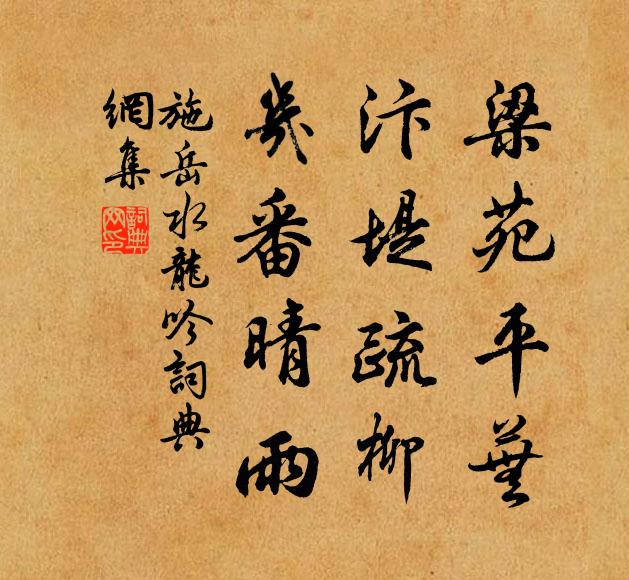 梁苑平蕪
汴堤疏柳
幾番晴雨
施岳水龍吟詞典
網集
詞典
网印